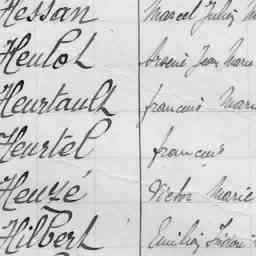 Hessan Marcel Julien
Heulot Arsène Jean Marie
Heurtault François Marie
Heurtel François
Heuzé Victor Marie
Hilbert Emilien